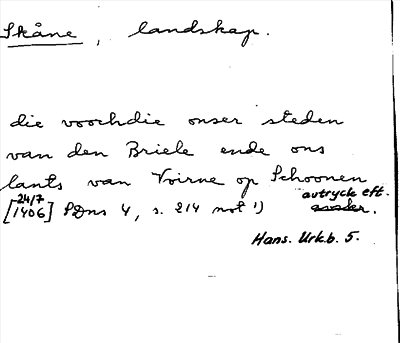 Skåne, landskap.
die voochdie onser steden
van den Briele ende ons
lants van Voirne op Schoonen
[24/7 1406] SDns 4, s. 214 not 1) avtryck eft.
Hans. Urk.b. 5.